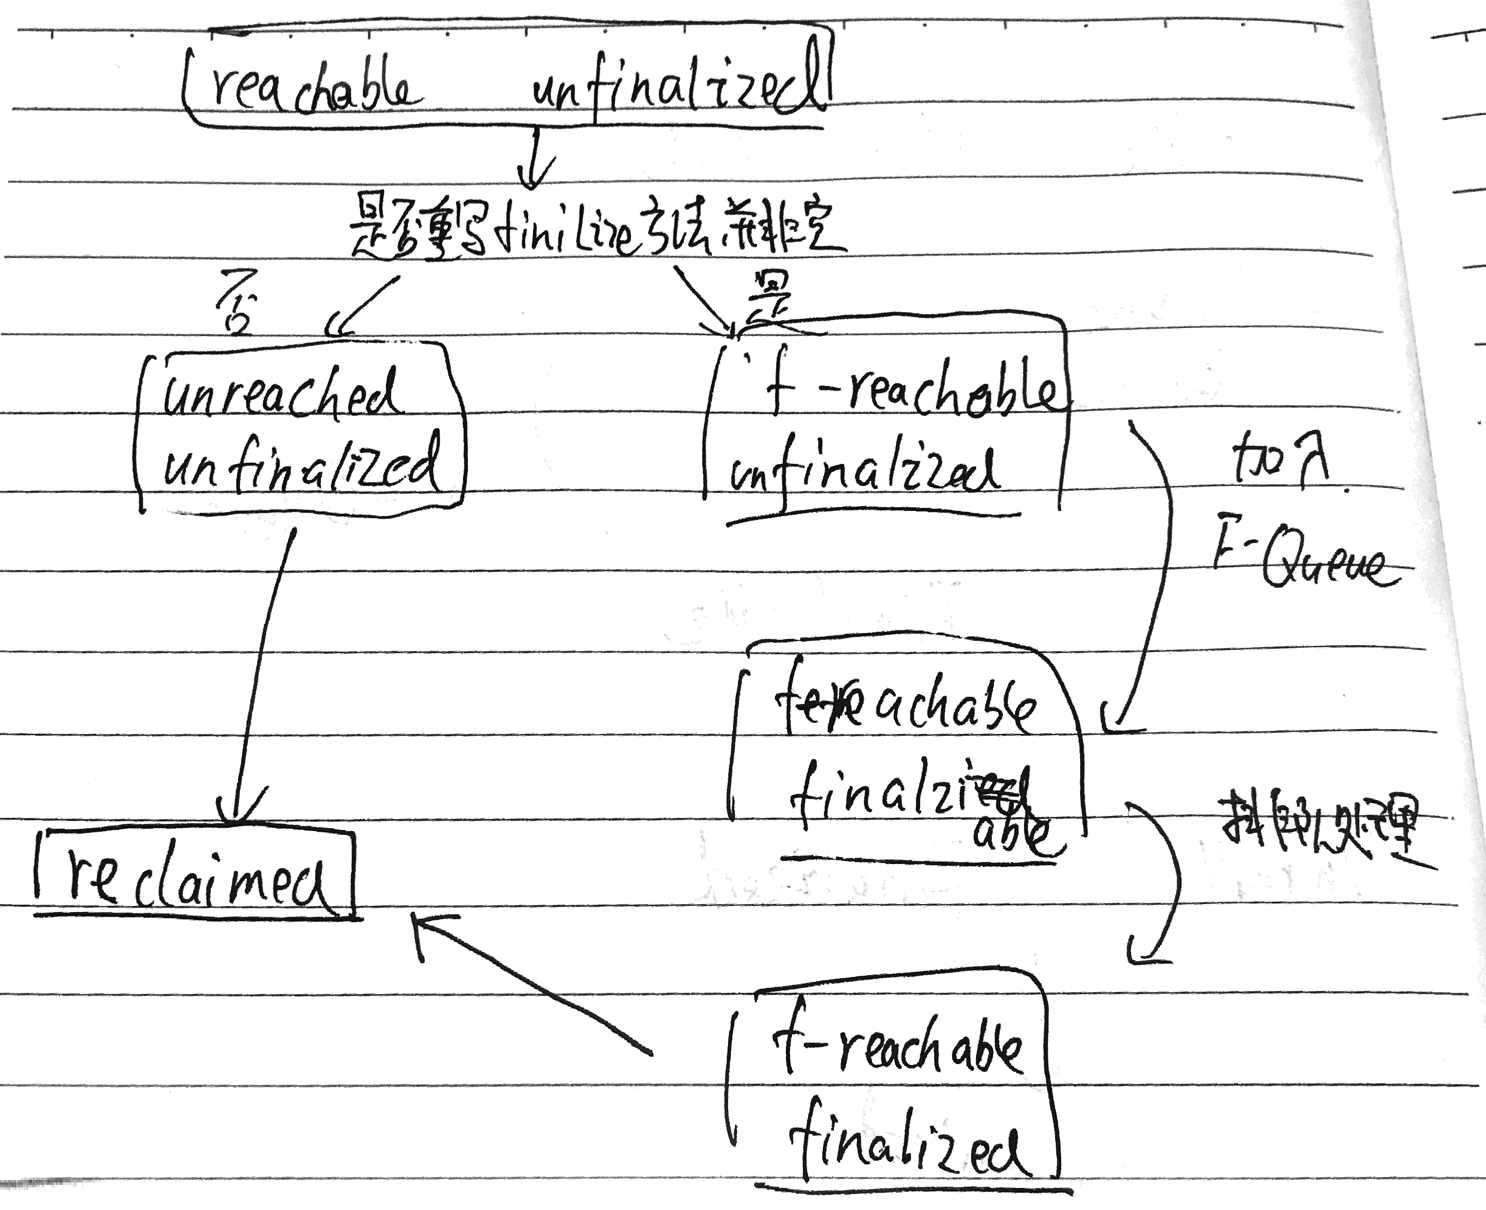 reachable unfinalized
是否重写finilize方法并非空
否
是
unreached
unfinalized
f-reachable
unfinalized
加入
F-Queue
f-reachable
finalziable
队处理
reclaimed
f-reachable
finalized